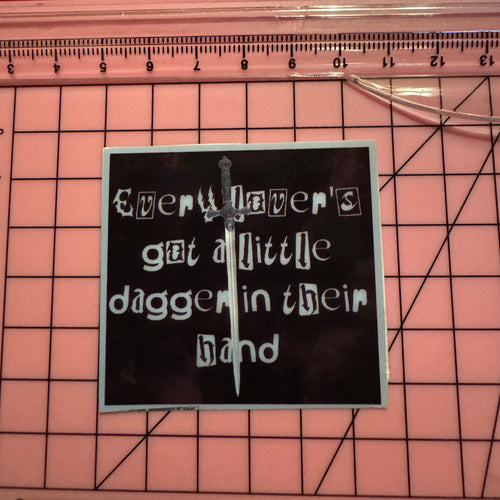 3 4 5 6 7 8 9 10 11 12 13
Every lover's
got a little
dagger in their
hand